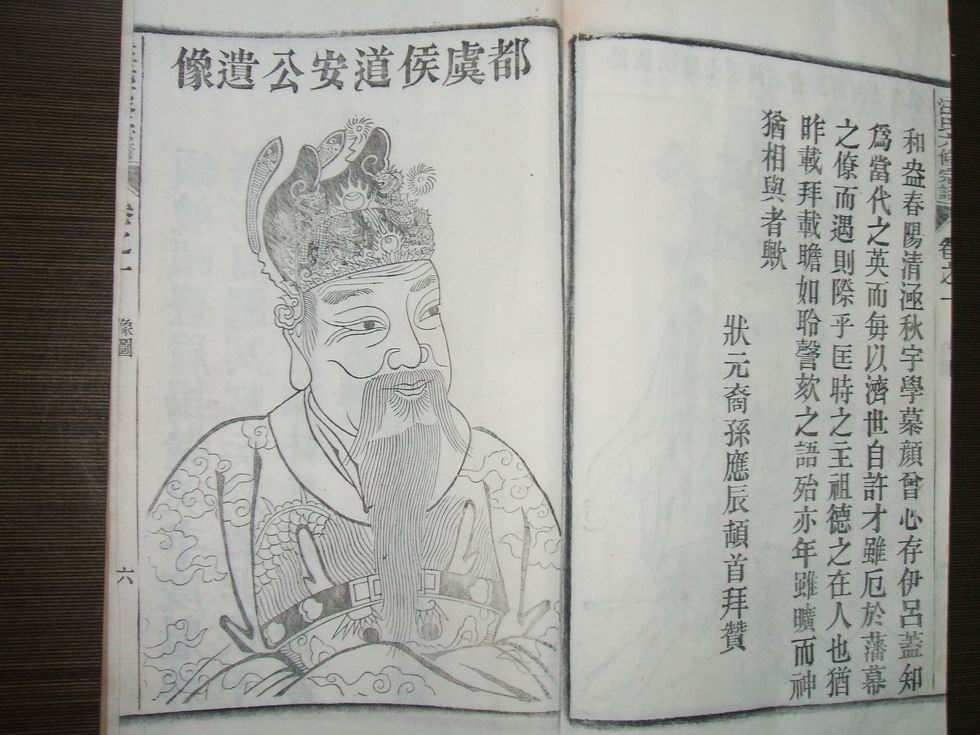 卷之一
和盎春陽清涵秋宇學慕顔曾心存伊呂蓋知
爲當代之英而每以濟世自許才雖厄於藩幕
之僚而遇則際乎匡時之主祖德之在人也猶
昨載拜載瞻如聆謦欬之語殆亦年雖曠而神
猶相與者歟
狀元裔孫應辰頓首拜贊
都虞侯道安公遺像
卷之一
像圖
六